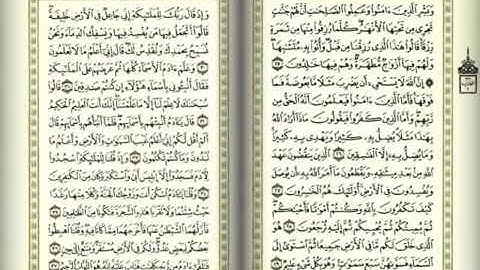 وَبَشِّرِ ٱلَّذِينَ ءَامَنُوا۟ وَعَمِلُوا۟ ٱلصَّٰلِحَٰتِ أَنَّ لَهُمْ جَنَّٰتٍ
تَجْرِى مِن تَحْتِهَا ٱلْأَنْهَٰرُ كُلَّمَا رُزِقُوا۟ مِنْهَا مِن ثَمَرَةٍ
رِّزْقًا قَالُوا۟ هَٰذَا ٱلَّذِى رُزِقْنَا مِن قَبْلُ وَأُتُوا۟ بِهِۦ مُتَشَٰبِهًا
وَلَهُمْ فِيهَآ أَزْوَٰجٌ مُّطَهَّرَةٌ وَهُمْ فِيهَا خَٰلِدُونَ ٢٥
إِنَّ ٱللَّهَ لَا يَسْتَحْىِۦٓ أَن يَضْرِبَ مَثَلًا مَّا بَعُوضَةً فَمَا
فَوْقَهَا فَأَمَّا ٱلَّذِينَ ءَامَنُوا۟ فَيَعْلَمُونَ أَنَّهُ ٱلْحَقُّ مِن
رَّبِّهِمْ وَأَمَّا ٱلَّذِينَ كَفَرُوا۟ فَيَقُولُونَ مَاذَآ أَرَادَ ٱللَّهُ
بِهَٰذَا مَثَلًا يُضِلُّ بِهِۦ كَثِيرًا وَيَهْدِى بِهِۦ كَثِيرًا
وَمَا يُضِلُّ بِهِۦٓ إِلَّا ٱلْفَٰسِقِينَ ٢٦ ٱلَّذِينَ يَنقُضُونَ عَهْدَ
ٱللَّهِ مِنۢ بَعْدِ مِيثَٰقِهِۦ وَيَقْطَعُونَ مَآ أَمَرَ ٱللَّهُ بِهِۦٓ أَن يُوصَلَ
وَيُفْسِدُونَ فِى ٱلْأَرْضِ أُو۟لَٰٓئِكَ هُمُ ٱلْخَٰسِرُونَ ٢٧
كَيْفَ تَكْفُرُونَ بِٱللَّهِ وَكُنتُمْ أَمْوَٰتًا فَأَحْيَٰكُمْ ثُمَّ
يُمِيتُكُمْ ثُمَّ يُحْيِيكُمْ ثُمَّ إِلَيْهِ تُرْجَعُونَ ٢٨ هُوَ
ٱلَّذِى خَلَقَ لَكُم مَّا فِى ٱلْأَرْضِ جَمِيعًا ثُمَّ ٱسْتَوَىٰٓ إِلَى
ٱلسَّمَآءِ فَسَوَّىٰهُنَّ سَبْعَ سَمَٰوَٰتٍ وَهُوَ بِكُلِّ شَىْءٍ عَلِيمٌ ٢٩
وَإِذْ قَالَ رَبُّكَ لِلْمَلَٰٓئِكَةِ إِنِّى جَاعِلٌ فِى ٱلْأَرْضِ خَلِيفَةً
قَالُوٓا۟ أَتَجْعَلُ فِيهَا مَن يُفْسِدُ فِيهَا وَيَسْفِكُ ٱلدِّمَآءَ وَنَحْنُ
نُسَبِّحُ بِحَمْدِكَ وَنُقَدِّسُ لَكَ قَالَ إِنِّىٓ أَعْلَمُ مَا لَا تَعْلَمُونَ
٣٠ وَعَلَّمَ ءَادَمَ ٱلْأَسْمَآءَ كُلَّهَا ثُمَّ عَرَضَهُمْ عَلَى ٱلْمَلَٰٓئِكَةِ
فَقَالَ أَنۢبِـُٔونِى بِأَسْمَآءِ هَٰٓؤُلَآءِ إِن كُنتُمْ صَٰدِقِينَ ٣١ قَالُوا۟
سُبْحَٰنَكَ لَا عِلْمَ لَنَآ إِلَّا مَا عَلَّمْتَنَآ إِنَّكَ أَنتَ ٱلْعَلِيمُ ٱلْحَكِيمُ
٣٢ قَالَ يَٰٓـَٔادَمُ أَنۢبِئْهُم بِأَسْمَآئِهِمْ فَلَمَّآ أَنۢبَأَهُم بِأَسْمَآئِهِمْ قَالَ
أَلَمْ أَقُل لَّكُمْ إِنِّىٓ أَعْلَمُ غَيْبَ ٱلسَّمَٰوَٰتِ وَٱلْأَرْضِ وَأَعْلَمُ مَا
تُبْدُونَ وَمَا كُنتُمْ تَكْتُمُونَ ٣٣ وَإِذْ قُلْنَا لِلْمَلَٰٓئِكَةِ ٱسْجُدُوا۟
لِـَٔادَمَ فَسَجَدُوٓا۟ إِلَّآ إِبْلِيسَ أَبَىٰ وَٱسْتَكْبَرَ وَكَانَ مِنَ ٱلْكَٰفِرِينَ
٣٤ وَقُلْنَا يَٰٓـَٔادَمُ ٱسْكُنْ أَنتَ وَزَوْجُكَ ٱلْجَنَّةَ وَكُلَا مِنْهَا رَغَدًا
حَيْثُ شِئْتُمَا وَلَا تَقْرَبَا هَٰذِهِ ٱلشَّجَرَةَ فَتَكُونَا مِنَ ٱلظَّٰلِمِينَ ٣٥
فَأَزَلَّهُمَا ٱلشَّيْطَٰنُ عَنْهَا فَأَخْرَجَهُمَا مِمَّا كَانَا فِيهِ وَقُلْنَا ٱهْبِطُوا۟
بَعْضُكُمْ لِبَعْضٍ عَدُوٌّ وَلَكُمْ فِى ٱلْأَرْضِ مُسْتَقَرٌّ وَمَتَٰعٌ إِلَىٰ حِينٍ ٣٦